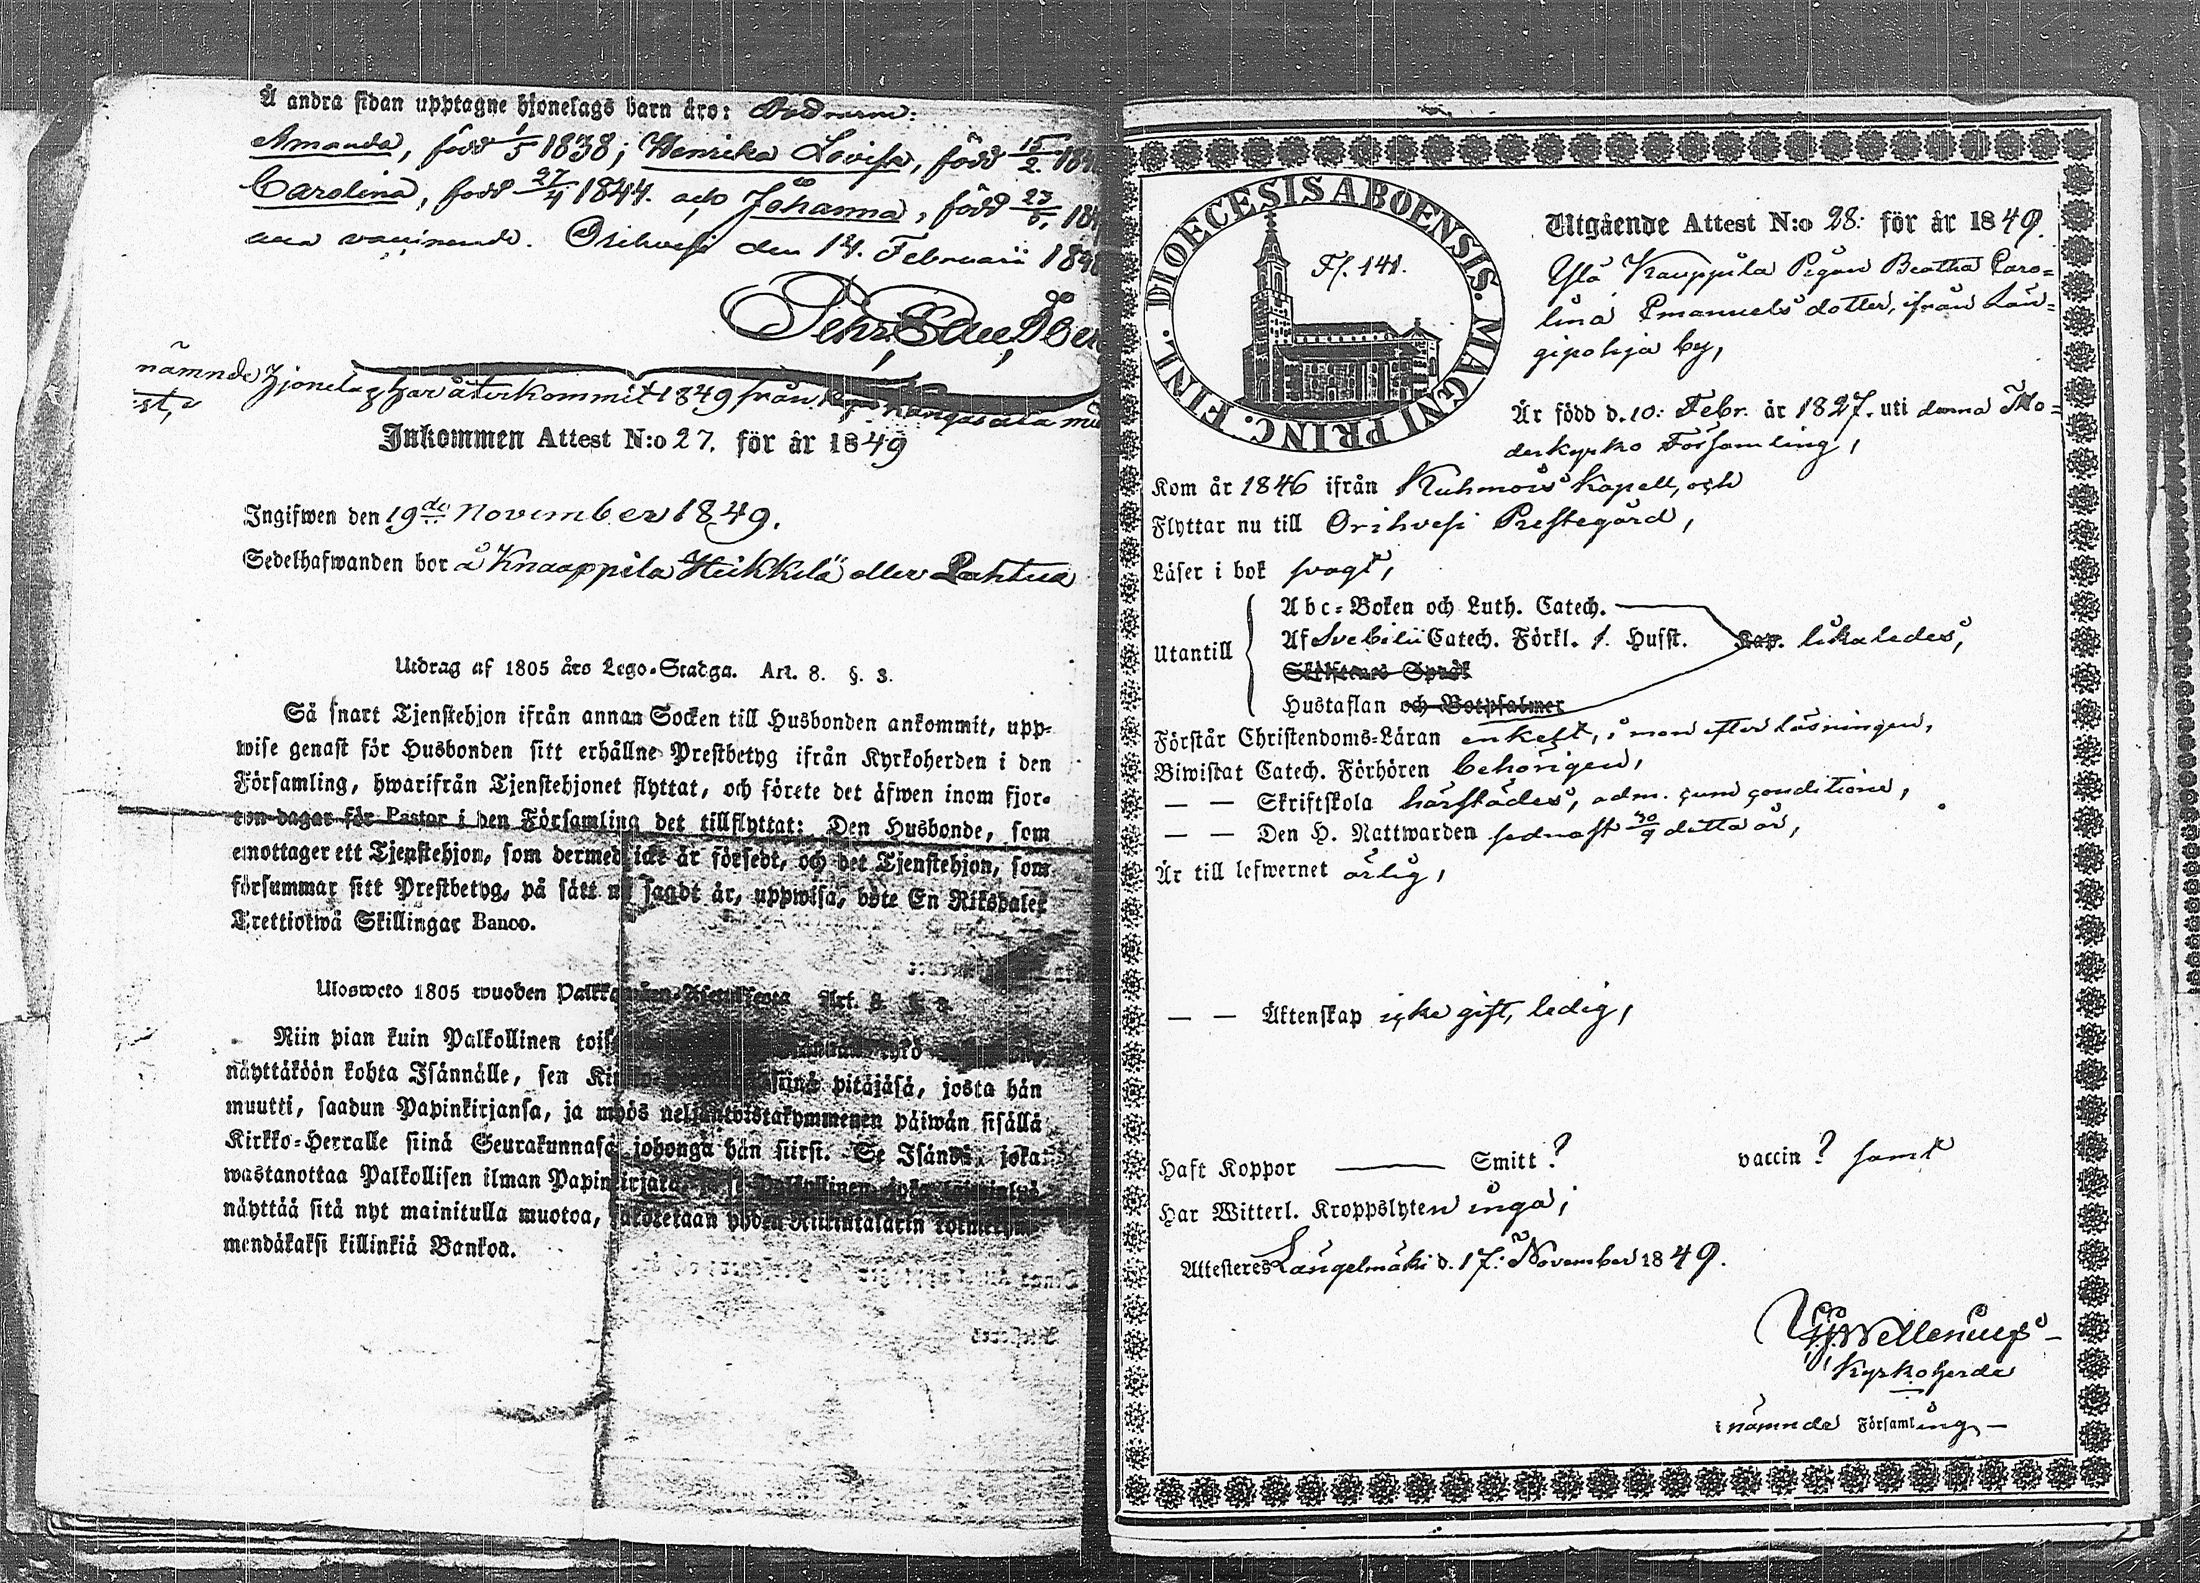 Å andra sidan upptagne hjonelags barn äro: Döttrarne:
Amanda, född 1/5 1838; Henrika Lovisa, född 15/2
Carolina, född 27/4 1844. och Johanna, född 23/5.
vaccinerade. Orihvesi den 14. Februarii
Pehr
nämnde Hjonelag har återkommit 1849 från Kangasala
Inkommen Attest N:o 27. för år 1849
Ingifwen den 19de November 1849.
Sedelhafwanden bor å Knaappila Heikkilä eller Lahtua
Utdrag af 1805 års Lego-Stadga. Art. 8. §. 3.
Så snart Tjenstehjon ifrån annan Socken till Husbonden ankommit, upp-
wise genast för Husbonden sitt erhållne Prestbetyg ifrån Kyrkoherden i den
Församling, hwarifrån Tjenstehjonet flyttat, och förete det äfwen inom fjor-
ton dagar för Pastor i den Församling det tillflyttat: Den Husbonde, som
emottager ett Tjenstehjon, som dermed icke är försedt, och det Tjenstehjon, som
försummar sitt Prestbetyg, på sätt nu sagdt är, uppwisa, böte En Riksdaler
Trettiotwå Skillingar Banco.
Ulosweto 1805 wuoden Art. 8. §. 3.
Niin pian kuin Palkollinen
näyttäköön kohta Isännälle, sen siinä pitäjäsä, josta hän
muutti, saadun Papinkirjansa, ja myös neljäntoistakymmenen päiwän sisällä
Kirkko-Herralle siinä Seurakunnasa johonga hän siirsi. Se Isändä, joka
wastanottaa Palkollisen ilman Papinkirjata, ja se Palkollinen, joka
näyttää sitä nyt mainitulla muotoa, sakotetaan yhden Riikintalarin
mendäkaksi killinkiä Bankoa.
DIOECESIS ABOENSIS. MAGNI PRINC. FINL.
Ff. 141.
Utgående Attest N:o 28: för år 1849.
Ylä Krauppila Pigan Beatha Caro-
lina Emanuels dotter, ifrån Län-
gipohja by,
Är född d. 10: Febr. år 1827. uti denna Mo-
derkyrko Församling,
Kom år 1846 ifrån Kuhmois Kapell, och
Flyttar nu till Orihvesi Prestegård,
Läser i bok svagt,
Utantill
Abc-Boken och Luth. Catech.
Af Svebilii Catech. Förkl. 1. Husst. Kap. likaledes,
Skriftenes Språk
Hustaflan och Botpsalmer
Förstår Christendoms-Läran enkelt, i mon efter läsningen,
Biwistat Catech. Förhören behörigen,
— — Skriftskola härstädes, adm. cum conditione,
— — Den H. Nattwarden sednast 30/9 detta år,
Är till lefwernet ärlig,
— — Äktenskap icke gift, ledig,
Haft Koppor — Smitt? vaccin? samt
Har Witterl. Kroppslyten inga;
Attesteres Längelmäki d. 17. November 1849.
Wellenius
Kyrkoherde
i nämnde Församling